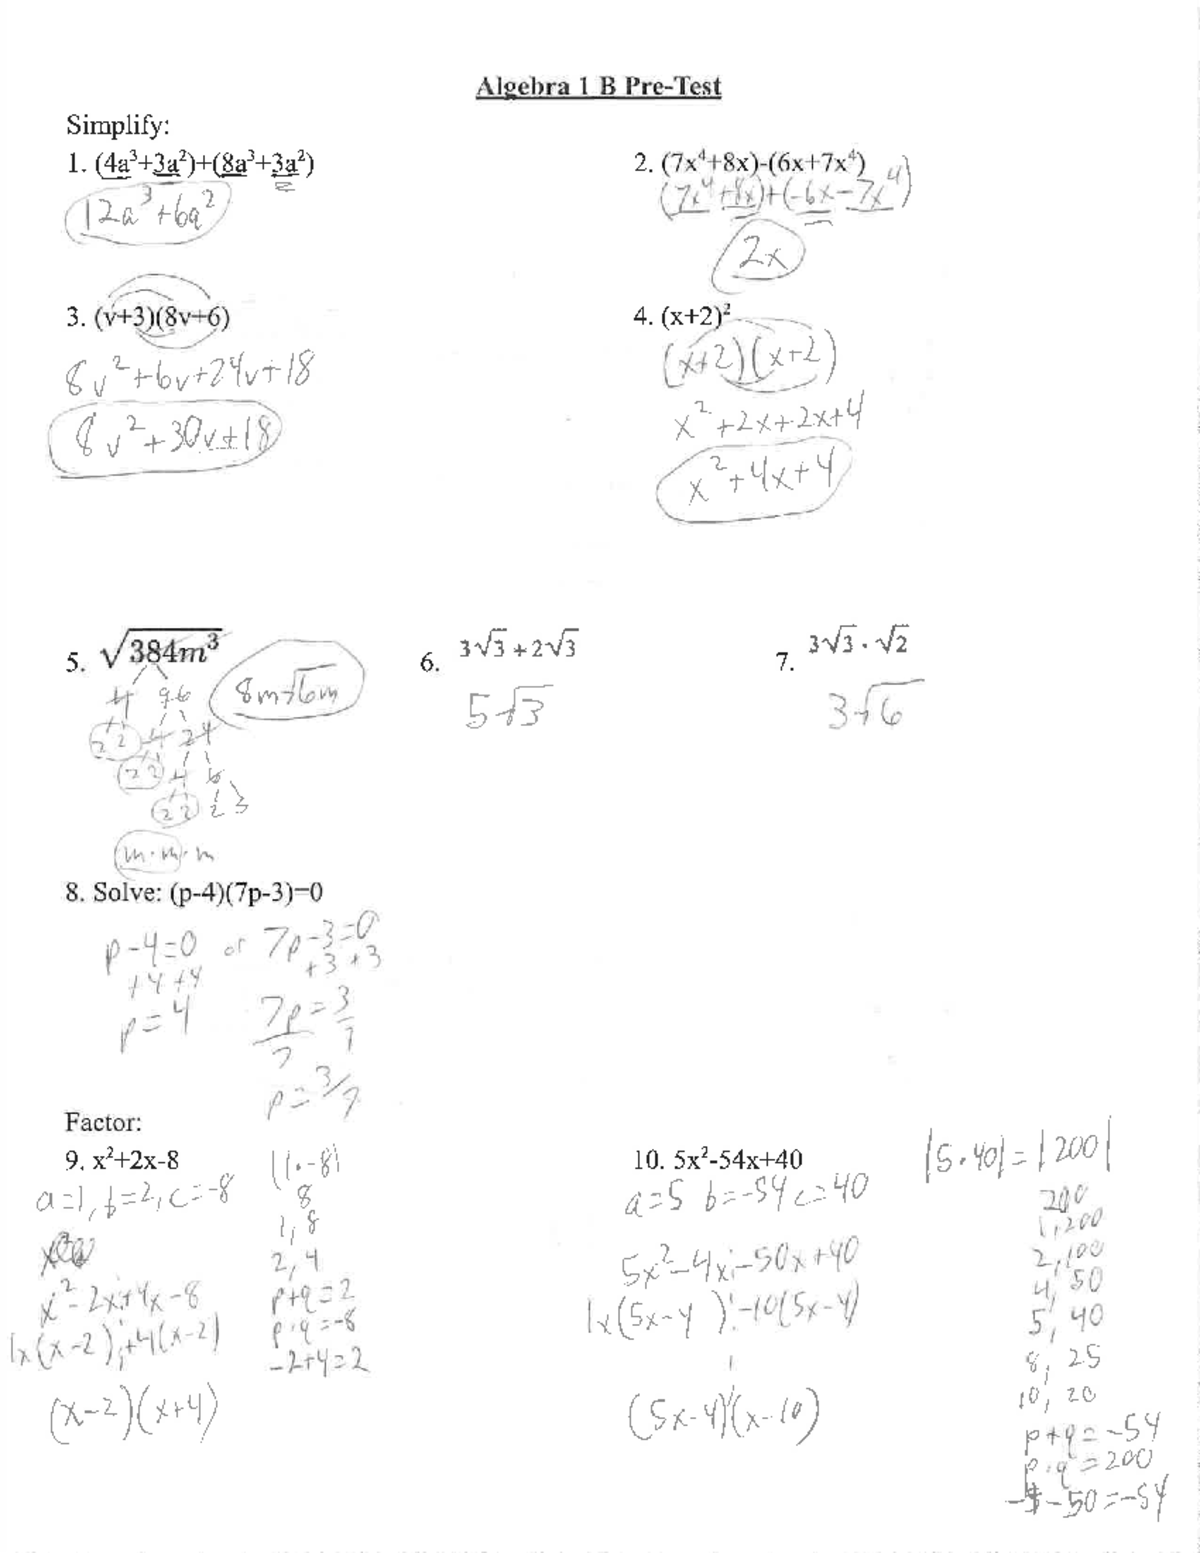 Algebra 1 B Pre-Test
Simplify:
1. (4a³+3a²)+(8a³+3a²)
12a³+6a²
2. (7x⁴+8x)-(6x+7x⁴)
(7x⁴+8x)+(-6x-7x⁴)
2x
3. (v+3)(8v+6)
8v²+6v+24v+18
8v²+30v+18
4. (x+2)²
(x+2)(x+2)
x²+2x+2x+4
x²+4x+4
5. √384m³
4 96
2 2 4 24
2 2 4 6
2 2 2 3
m·m·m
8m√6m
6. 3√3+2√3
5√3
7. 3√3·√2
3√6
8. Solve: (p-4)(7p-3)=0
p-4=0 or 7p-3=0
+4 +4 +3 +3
p=4 7p=3
7 7
p=3/7
Factor:
9. x²+2x-8
a=1, b=2, c=-8
x²-2x+4x-8
1x(x-2)+4(x-2)
(x-2)(x+4)
|1·-8|
8
1, 8
2, 4
p+q=2
p·q=-8
-2+4=2
10. 5x²-54x+40
a=5 b=-54 c=40
5x²-4x-50x+40
1x(5x-4)-10(5x-4)
(5x-4)(x-10)
|5·40|=|200|
200
1, 200
2, 100
4, 50
5, 40
8, 25
10, 20
p+q=-54
p·q=200
-4-50=-54